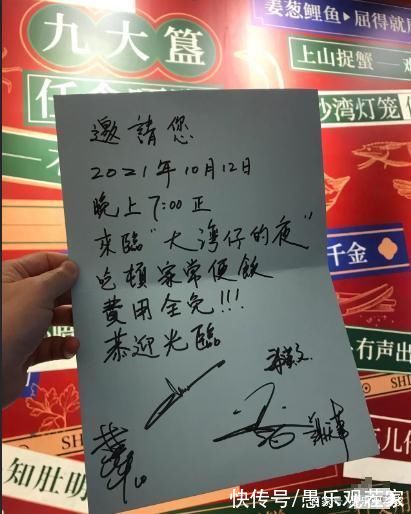 九大簋
姜葱鲤鱼
屈得就
上山捉蟹
沙湾灯笼
千金
有声出
知肚明
邀請您
2021年10月12日
晚上7:00正
來臨"大灣仔的夜"
吃頓家常便飯
費用全免!!!
恭迎光臨
快传号/愚乐观茬家